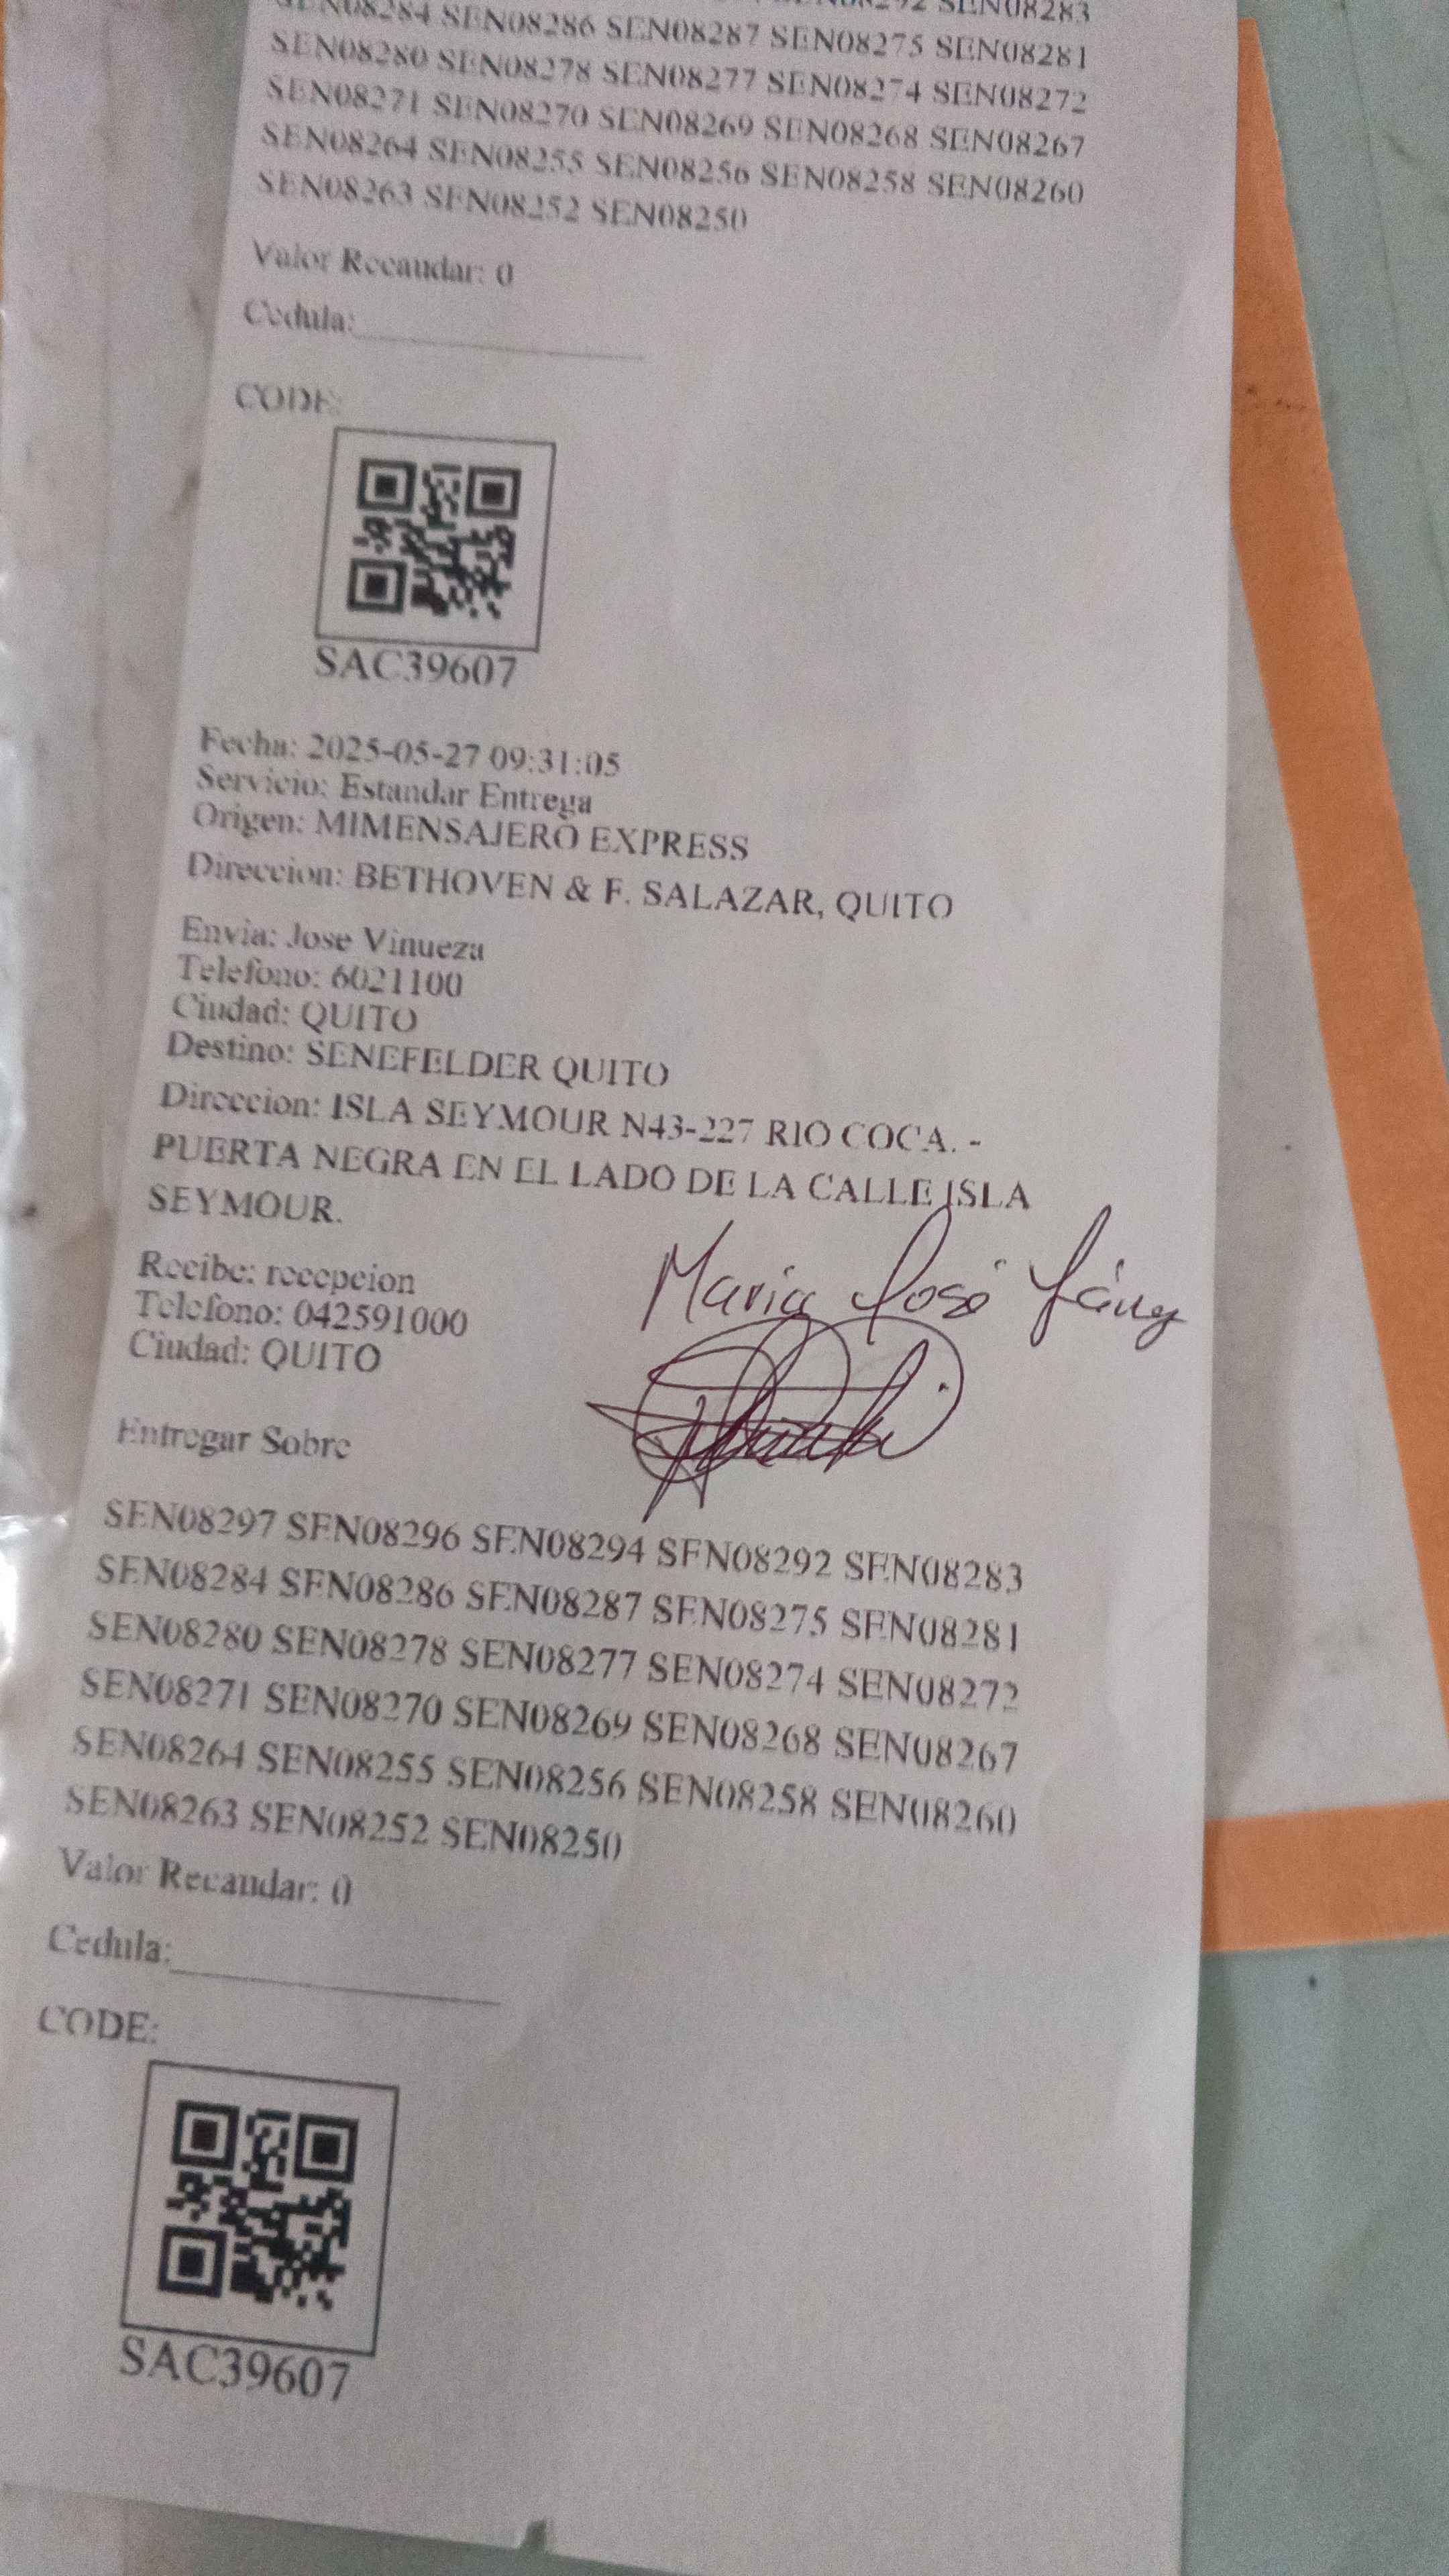 SEN08292 SEN08283
SEN08284 SEN08286 SEN08287 SEN08275 SEN08281
SEN08280 SEN08278 SEN08277 SEN08274 SEN08272
SEN08271 SEN08270 SEN08269 SEN08268 SEN08267
SEN08264 SEN08255 SEN08256 SEN08258 SEN08260
SEN08263 SEN08252 SEN08250
Valor Recaudar: 0
Cedula:
CODE:
SAC39607
Fecha: 2025-05-27 09:31:05
Servicio: Estandar Entrega
Origen: MIMENSAJERO EXPRESS
Direccion: BETHOVEN & F. SALAZAR, QUITO
Envia: Jose Vinueza
Telefono: 6021100
Ciudad: QUITO
Destino: SENEFELDER QUITO
Direccion: ISLA SEYMOUR N43-227 RIO COCA. -
PUERTA NEGRA EN EL LADO DE LA CALLE ISLA
SEYMOUR.
Recibe: recepcion
María José
Telefono: 042591000
Ciudad: QUITO
Entregar Sobre
SEN08297 SEN08296 SEN08294 SEN08292 SEN08283
SEN08284 SEN08286 SEN08287 SEN08275 SEN08281
SEN08280 SEN08278 SEN08277 SEN08274 SEN08272
SEN08271 SEN08270 SEN08269 SEN08268 SEN08267
SEN08264 SEN08255 SEN08256 SEN08258 SEN08260
SEN08263 SEN08252 SEN08250
Valor Recaudar: 0
Cedula:
CODE:
SAC39607